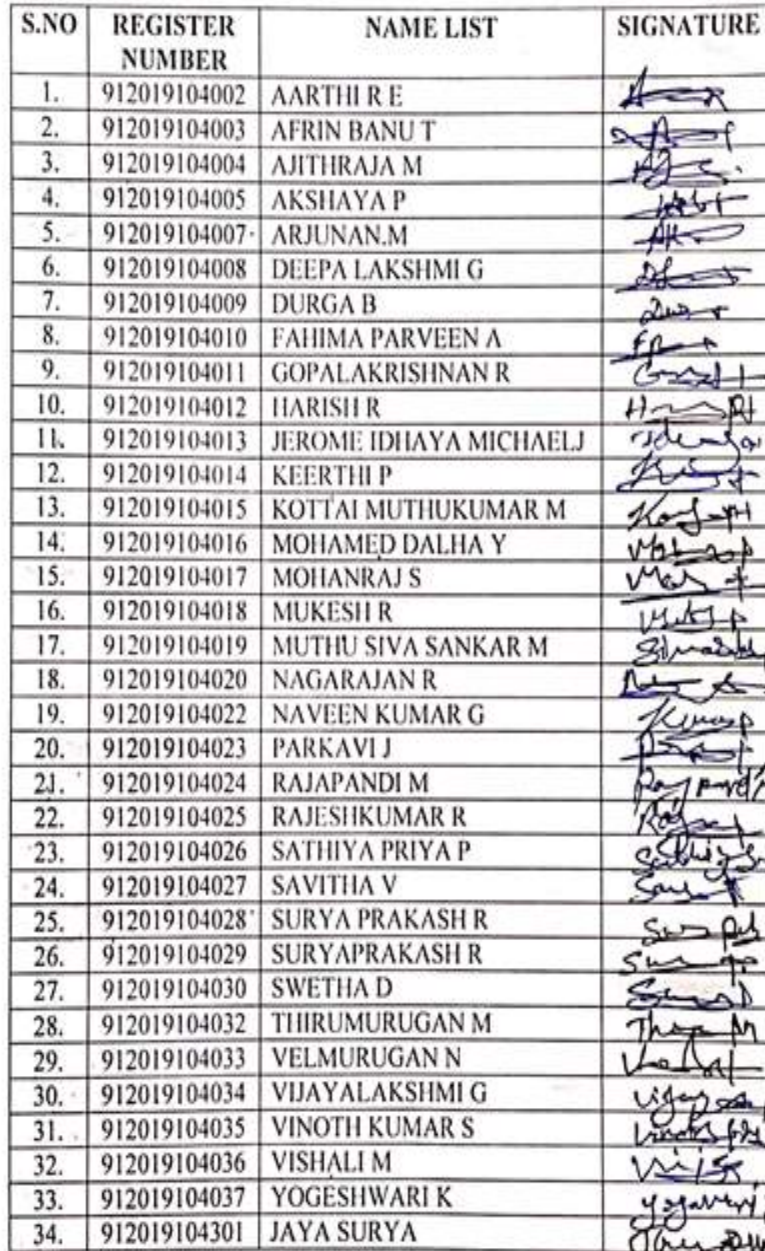 S.NO REGISTER NUMBER NAME LIST SIGNATURE
1. 912019104002 AARTHI R E
2. 912019104003 AFRIN BANU T
3. 912019104004 AJITHRAJA M
4. 912019104005 AKSHAYA P
5. 912019104007 ARJUNAN.M
6. 912019104008 DEEPA LAKSHMI G
7. 912019104009 DURGA B
8. 912019104010 FAHIMA PARVEEN A
9. 912019104011 GOPALAKRISHNAN R
10. 912019104012 HARISH R
11. 912019104013 JEROME IDHAYA MICHAELJ
12. 912019104014 KEERTHI P
13. 912019104015 KOTTAI MUTHUKUMAR M
14. 912019104016 MOHAMED DALHA Y
15. 912019104017 MOHANRAJ S
16. 912019104018 MUKESH R
17. 912019104019 MUTHU SIVA SANKAR M
18. 912019104020 NAGARAJAN R
19. 912019104022 NAVEEN KUMAR G
20. 912019104023 PARKAVI J
21. 912019104024 RAJAPANDI M
22. 912019104025 RAJESHKUMAR R
23. 912019104026 SATHIYA PRIYA P
24. 912019104027 SAVITHA V
25. 912019104028 SURYA PRAKASH R
26. 912019104029 SURYAPRAKASH R
27. 912019104030 SWETHA D
28. 912019104032 THIRUMURUGAN M
29. 912019104033 VELMURUGAN N
30. 912019104034 VIJAYALAKSHMI G
31. 912019104035 VINOTH KUMAR S
32. 912019104036 VISHALI M
33. 912019104037 YOGESHWARI K
34. 912019104301 JAYA SURYA